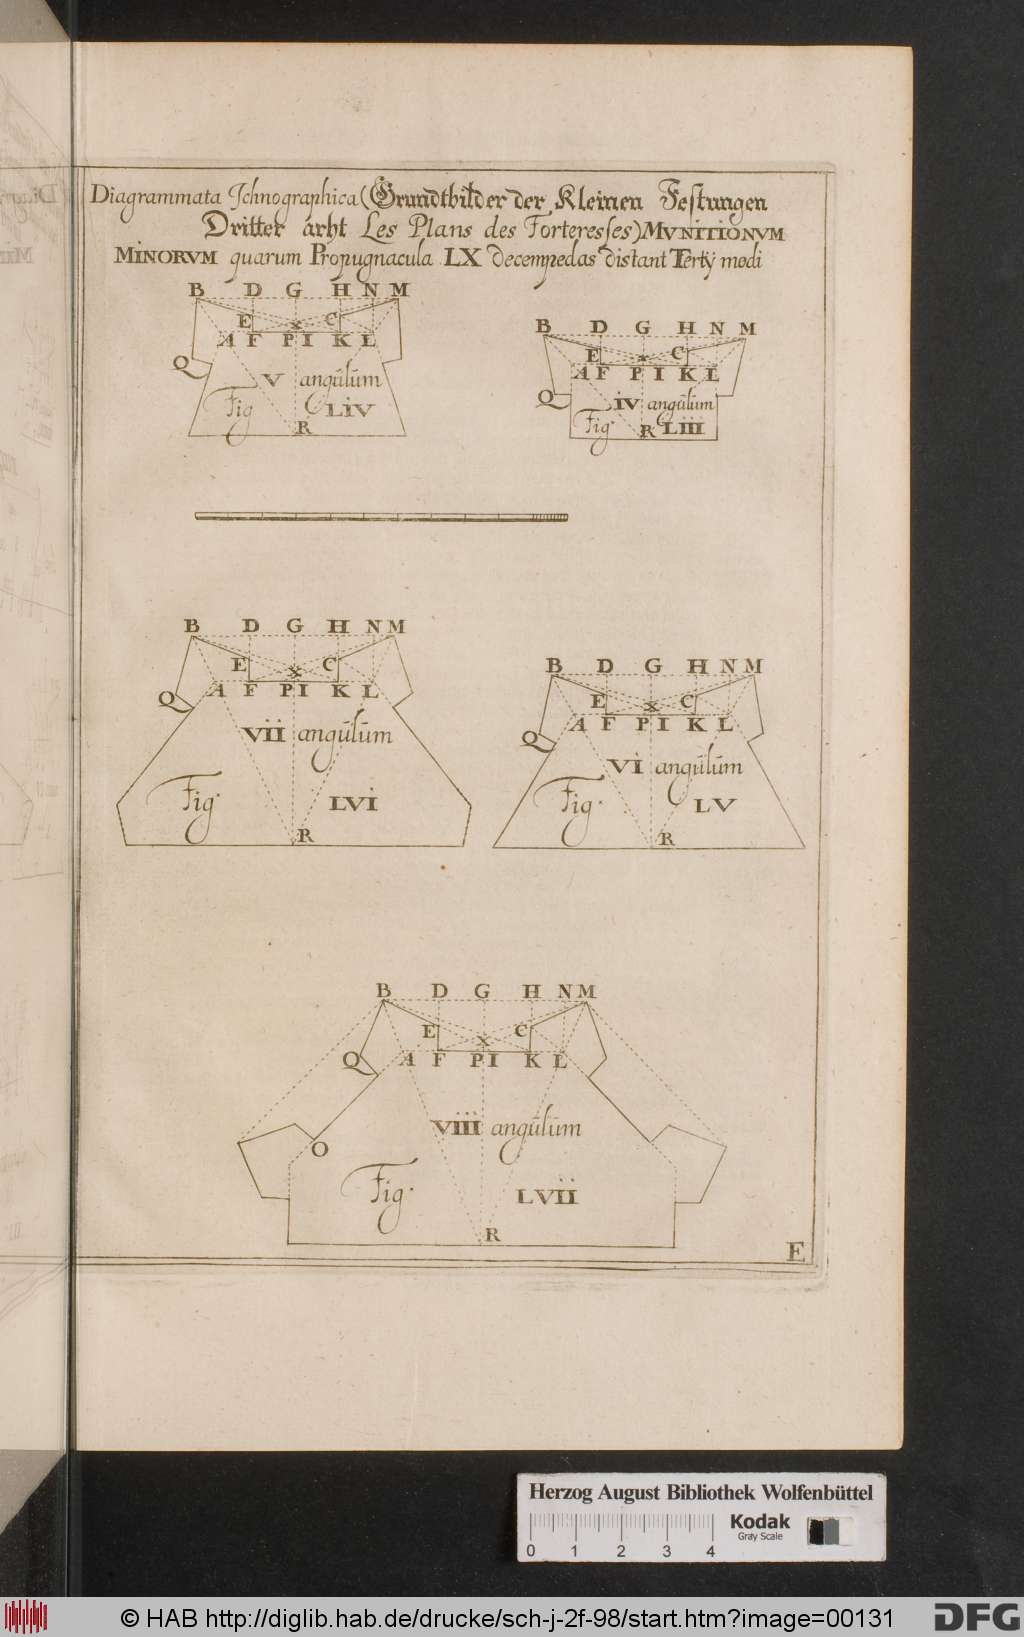 Diagrammata Ichnographica (Grundtbilder der Kleinen Festungen
Dritter arht Les Plans des Forteresses) MVNITIONVM
MINORVM quarum Propugnacula LX decempedas distant Tertÿ modi
B D G H N M
E X C
A F P I K L
Q
V angulum
Fig LIV
R
B D G H N M
E C
A F P I K L
Q
IV angulum
Fig. LIII
R
B D G H N M
E X C
A F P I K L
Q
VII angulum
Fig. LVI
R
B D G H N M
E X C
A F P I K L
Q
VI angulum
Fig. LV
R
B D G H N M
E X C
Q A F P I K L
VIII angulum
O
Fig. LVII
R
E
Herzog August Bibliothek Wolfenbüttel
Kodak
Gray Scale
0 1 2 3 4
© HAB http://diglib.hab.de/drucke/sch-j-2f-98/start.htm?image=00131
DFG